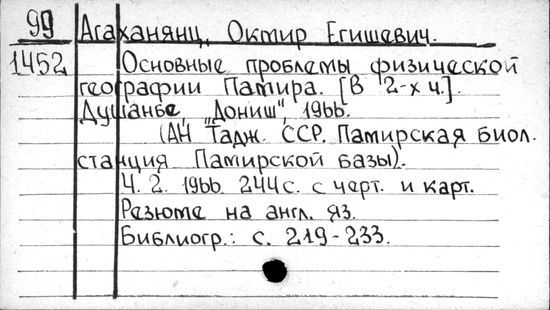 99 Агаханянц, Окмир Егишевич.
1452 Основные проблемы физической
географии Памира. [В 2-х ч.].
Душанбе, „Дониш", 1966.
(АН Тадж. ССР. Памирская биол.
станция Памирской базы).
Ч. 2. 1966. 244 с. с черт. и карт.
Резюме на англ. яз.
Библиогр.: с. 219-233.